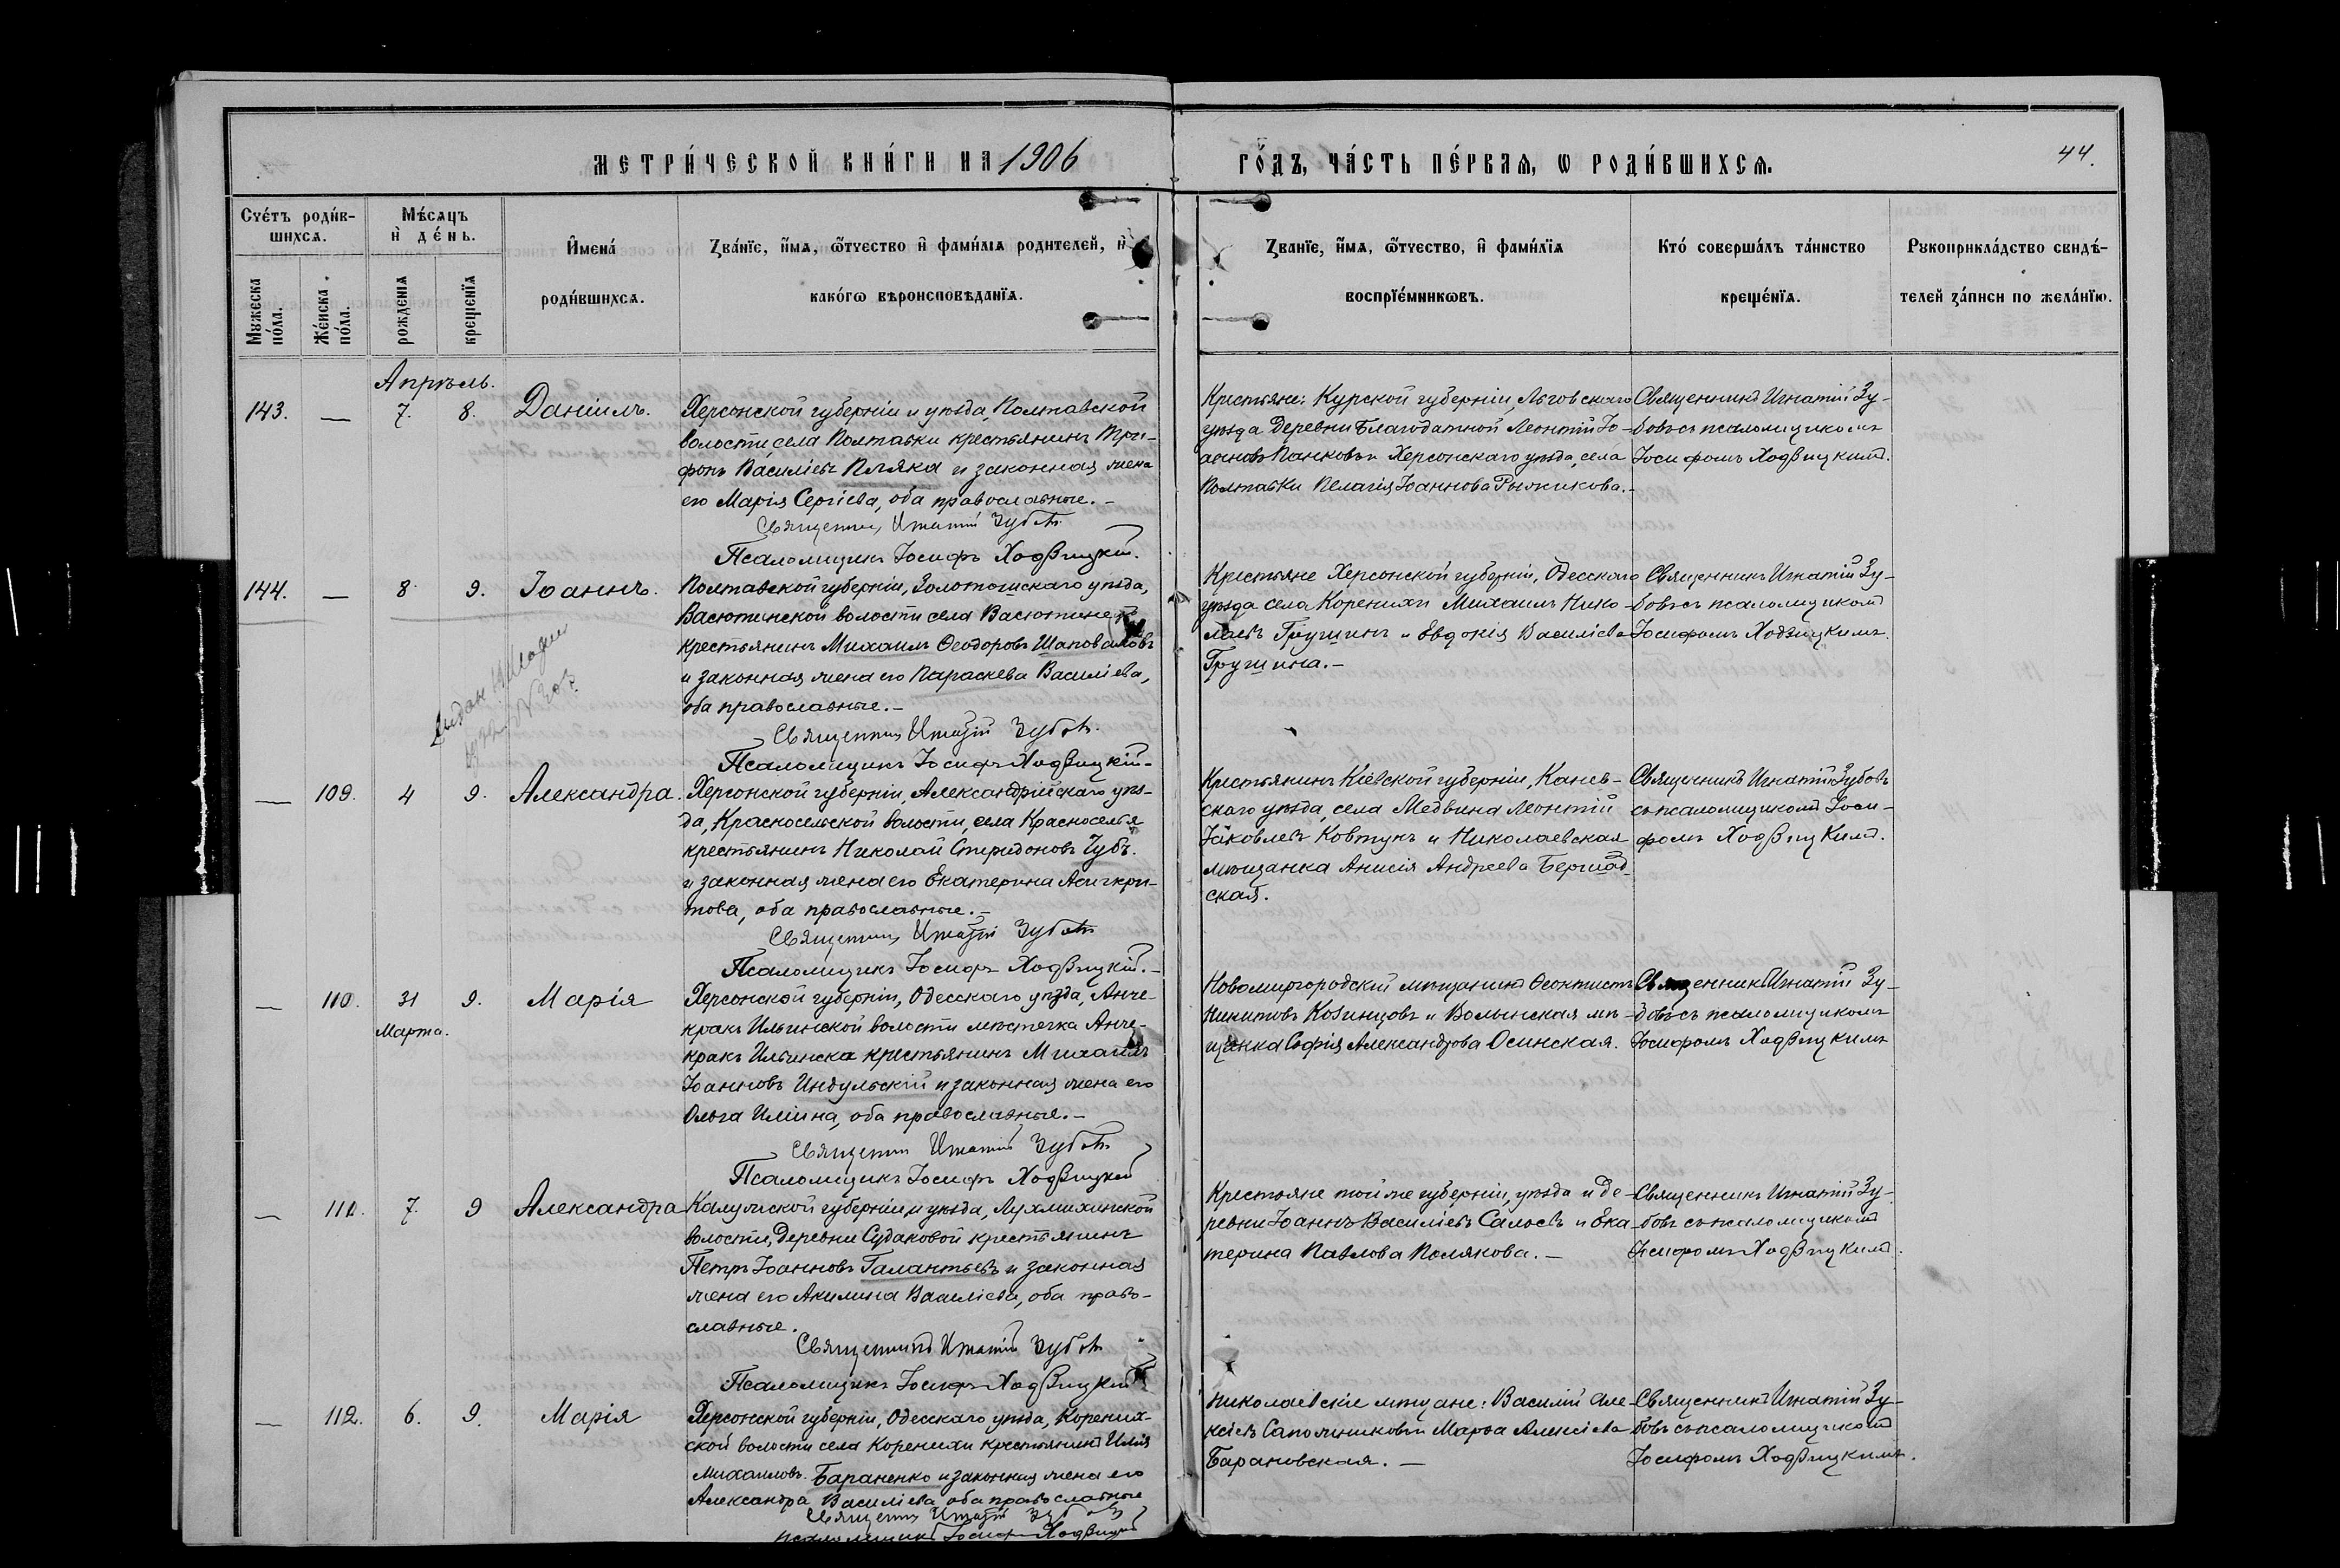 МЕТРИ́ЧЕСКОЙ КНИ́ГИ НА 1906
ГО́ДЪ, ЧА́СТЬ ПЕ́РВАѦ, Ѡ РОДИ́ВШИХСѦ.
44.
Сче́тъ роди́в-
шихсѧ.
Мѣ́сѧцъ
и҆ де́нь.
И҆мена́
роди́вшихсѧ.
Зва́нїе, и҆́мѧ, ѻ҆́тчество и҆ фами́лїѧ родителей, и҆
како́гѡ вѣроисповѣданїѧ.
Зва́нїе, и҆́мѧ, ѻ҆́тчество, и҆ фами́лїѧ
воспрїе́мниковъ.
Кто́ соверша́лъ та́инство
креще́нїѧ.
Рꙋкоприкла́дство свидѣ́-
телей за́писи по жела́нїю.
Мꙋжеска
по́ла.
Же́нска
по́ла.
рожденїѧ
крещенїѧ
Апрѣль.
143. — 7. 8. Даніилъ.
Херсонской губерніи и уѣзда, Полтавской
волости, села Полтавки крестьянинъ Три-
фонъ Василіевъ Пляка и законная жена
его Марія Сергіева, оба православные. –
Священникъ Игнатій Зубовъ
Псаломщикъ Іосифъ Ходзицкій.
Крестьяне: Курской губерніи, Льговскаго
уѣзда деревни Благодатной Леонтій Іо-
анновъ Панковъ и Херсонскаго уѣзда, села
Полтавки Пелагія Іоаннова Рыжикова. –
Священникъ Игнатій Зу-
бовъ съ псаломщикомъ
Іосифомъ Ходзицкимъ.
144. — 8 9. Іоаннъ.
Полтавской губерніи, Золотоношскаго уѣзда,
Васютинской волости села Васютинецъ
крестьянинъ Михаилъ Ѳеодоровъ Шаповаловъ
и законная жена его Параскева Василіева,
оба православные. –
Священникъ Игнатій Зубовъ.
Псаломщикъ Іосифъ Ходзицкій –
Крестьяне Херсонской губерніи, Одесскаго
уѣзда села Коренихи Михаилъ Нико-
лаевъ Грушинъ и Евдокія Василіева
Грушина. –
Священникъ Игнатій Зу-
бовъ съ псаломщикомъ
Іосифомъ Ходзицкимъ.
— 109. 4 9. Александра.
Херсонской губерніи, Александрійскаго уѣз-
да, Красносельской волости, села Красноселья
крестьянинъ Николай Спиридоновъ Чубъ.
и законная жена его Екатерина Асигкри-
това, оба православные. –
Священникъ Игнатій Зубовъ
Псаломщикъ Іосифъ Ходзицкій. –
Крестьянинъ Кіевской губерніи, Канев-
скаго уѣзда, села Медвина Леонтій
Іаковлевъ Ковтунъ и Николаевская
мѣщанка Анисія Андреева Бершад-
ская.
Священникъ Игнатій Зубовъ
съ псаломщикомъ Іоси-
фомъ Ходзицкимъ.
— 110. 31 9. Марія
Марта.
Херсонской губерніи, Одесскаго уѣзда, Анче-
кракъ Ильинской волости мѣстечка Анче-
кракъ Ильинска крестьянинъ Михаилъ
Іоанновъ Индульскій и законная жена его
Ольга Иліина, оба православные. –
Священникъ Игнатій Зубовъ
Псаломщикъ Іосифъ Ходзицкій
Новомиргородскій мѣщанинъ Ѳеоктистъ
Никитовъ Козинцовъ и Волынская мѣ-
щанка Софія Александрова Осинская.
Священникъ Игнатій Зу-
бовъ съ псаломщикомъ
Іосифомъ Ходзицкимъ
— 111. 7. 9 Александра
Калужской губерніи и уѣзда,
волости, деревни Судаковой крестьянинъ
Петръ Іоанновъ Галантьевъ и законная
жена его Акилина Василіева, оба право-
славные.
Священникъ Игнатій Зубовъ
Псаломщикъ Іосифъ Ходзицкій
Крестьяне той же губерніи, уѣзда и де-
ревни Іоаннъ Василіевъ Салосъ и Ека-
терина Павлова Полякова. –
Священникъ Игнатій Зу-
бовъ съ псаломщикомъ
Іосифомъ Ходзицкимъ.
— 112. 6. 9. Марія
Херсонской губерніи, Одесскаго уѣзда, Корених-
ской волости села Коренихи крестьянинъ Илія
Михаиловъ Бараненко и законная жена его
Александра Василіева оба православные
Священникъ Игнатій Зубовъ
Псаломщикъ Іосифъ Ходзицкій
Николаевскіе мѣщане: Василій Але-
ксіевъ Сапожниковъ и Марѳа Алексіева
Барановская. –
Священникъ Игнатій Зу-
бовъ съ псаломщикомъ
Іосифомъ Ходзицкимъ.